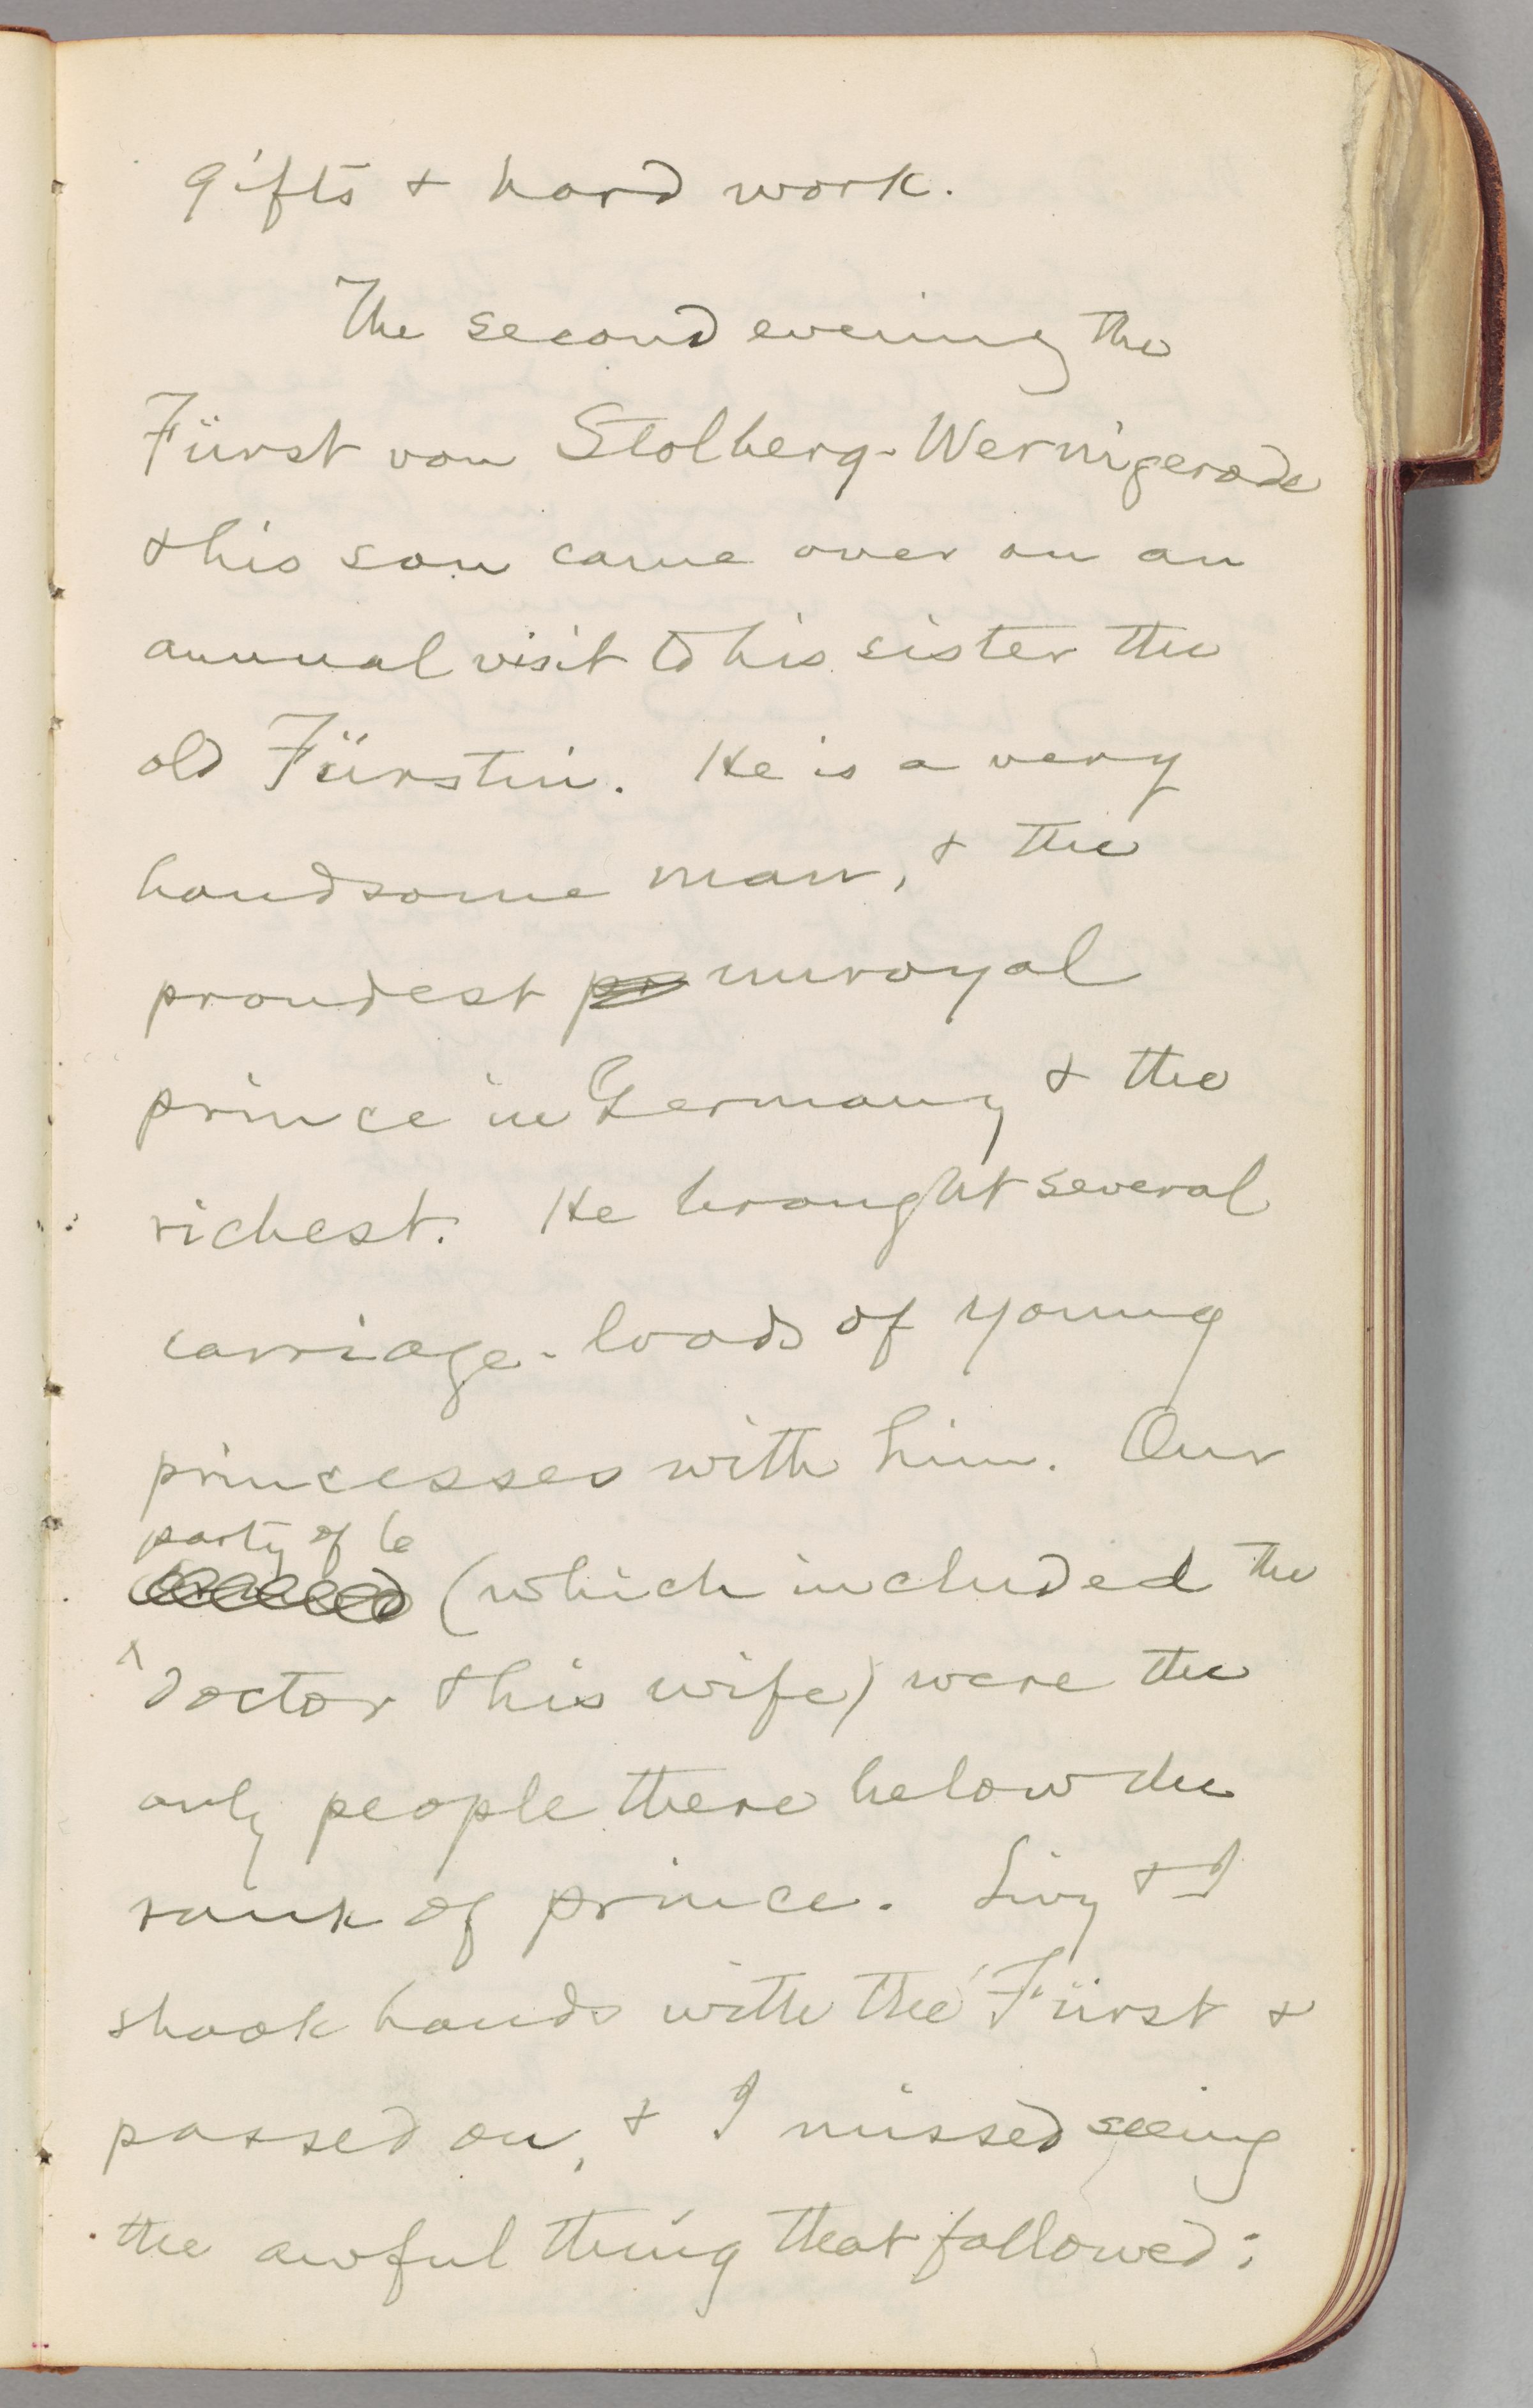 gifts & hard work.
The second evening the
Fürst von Stolberg-Wernigerode
& his son came over on an
annual visit to his sister the
old Fürstin. He is a very
handsome man, & the
proudest pr unroyal
prince in Germany & the
richest. He brought several
carriage-loads of young
princesses with him. Our
party of 6
(which included the
doctor & his wife) were the
only people there below the
rank of prince. Livy & I
shook hands with the Fürst &
passed on, & I missed seeing
the awful thing that followed: